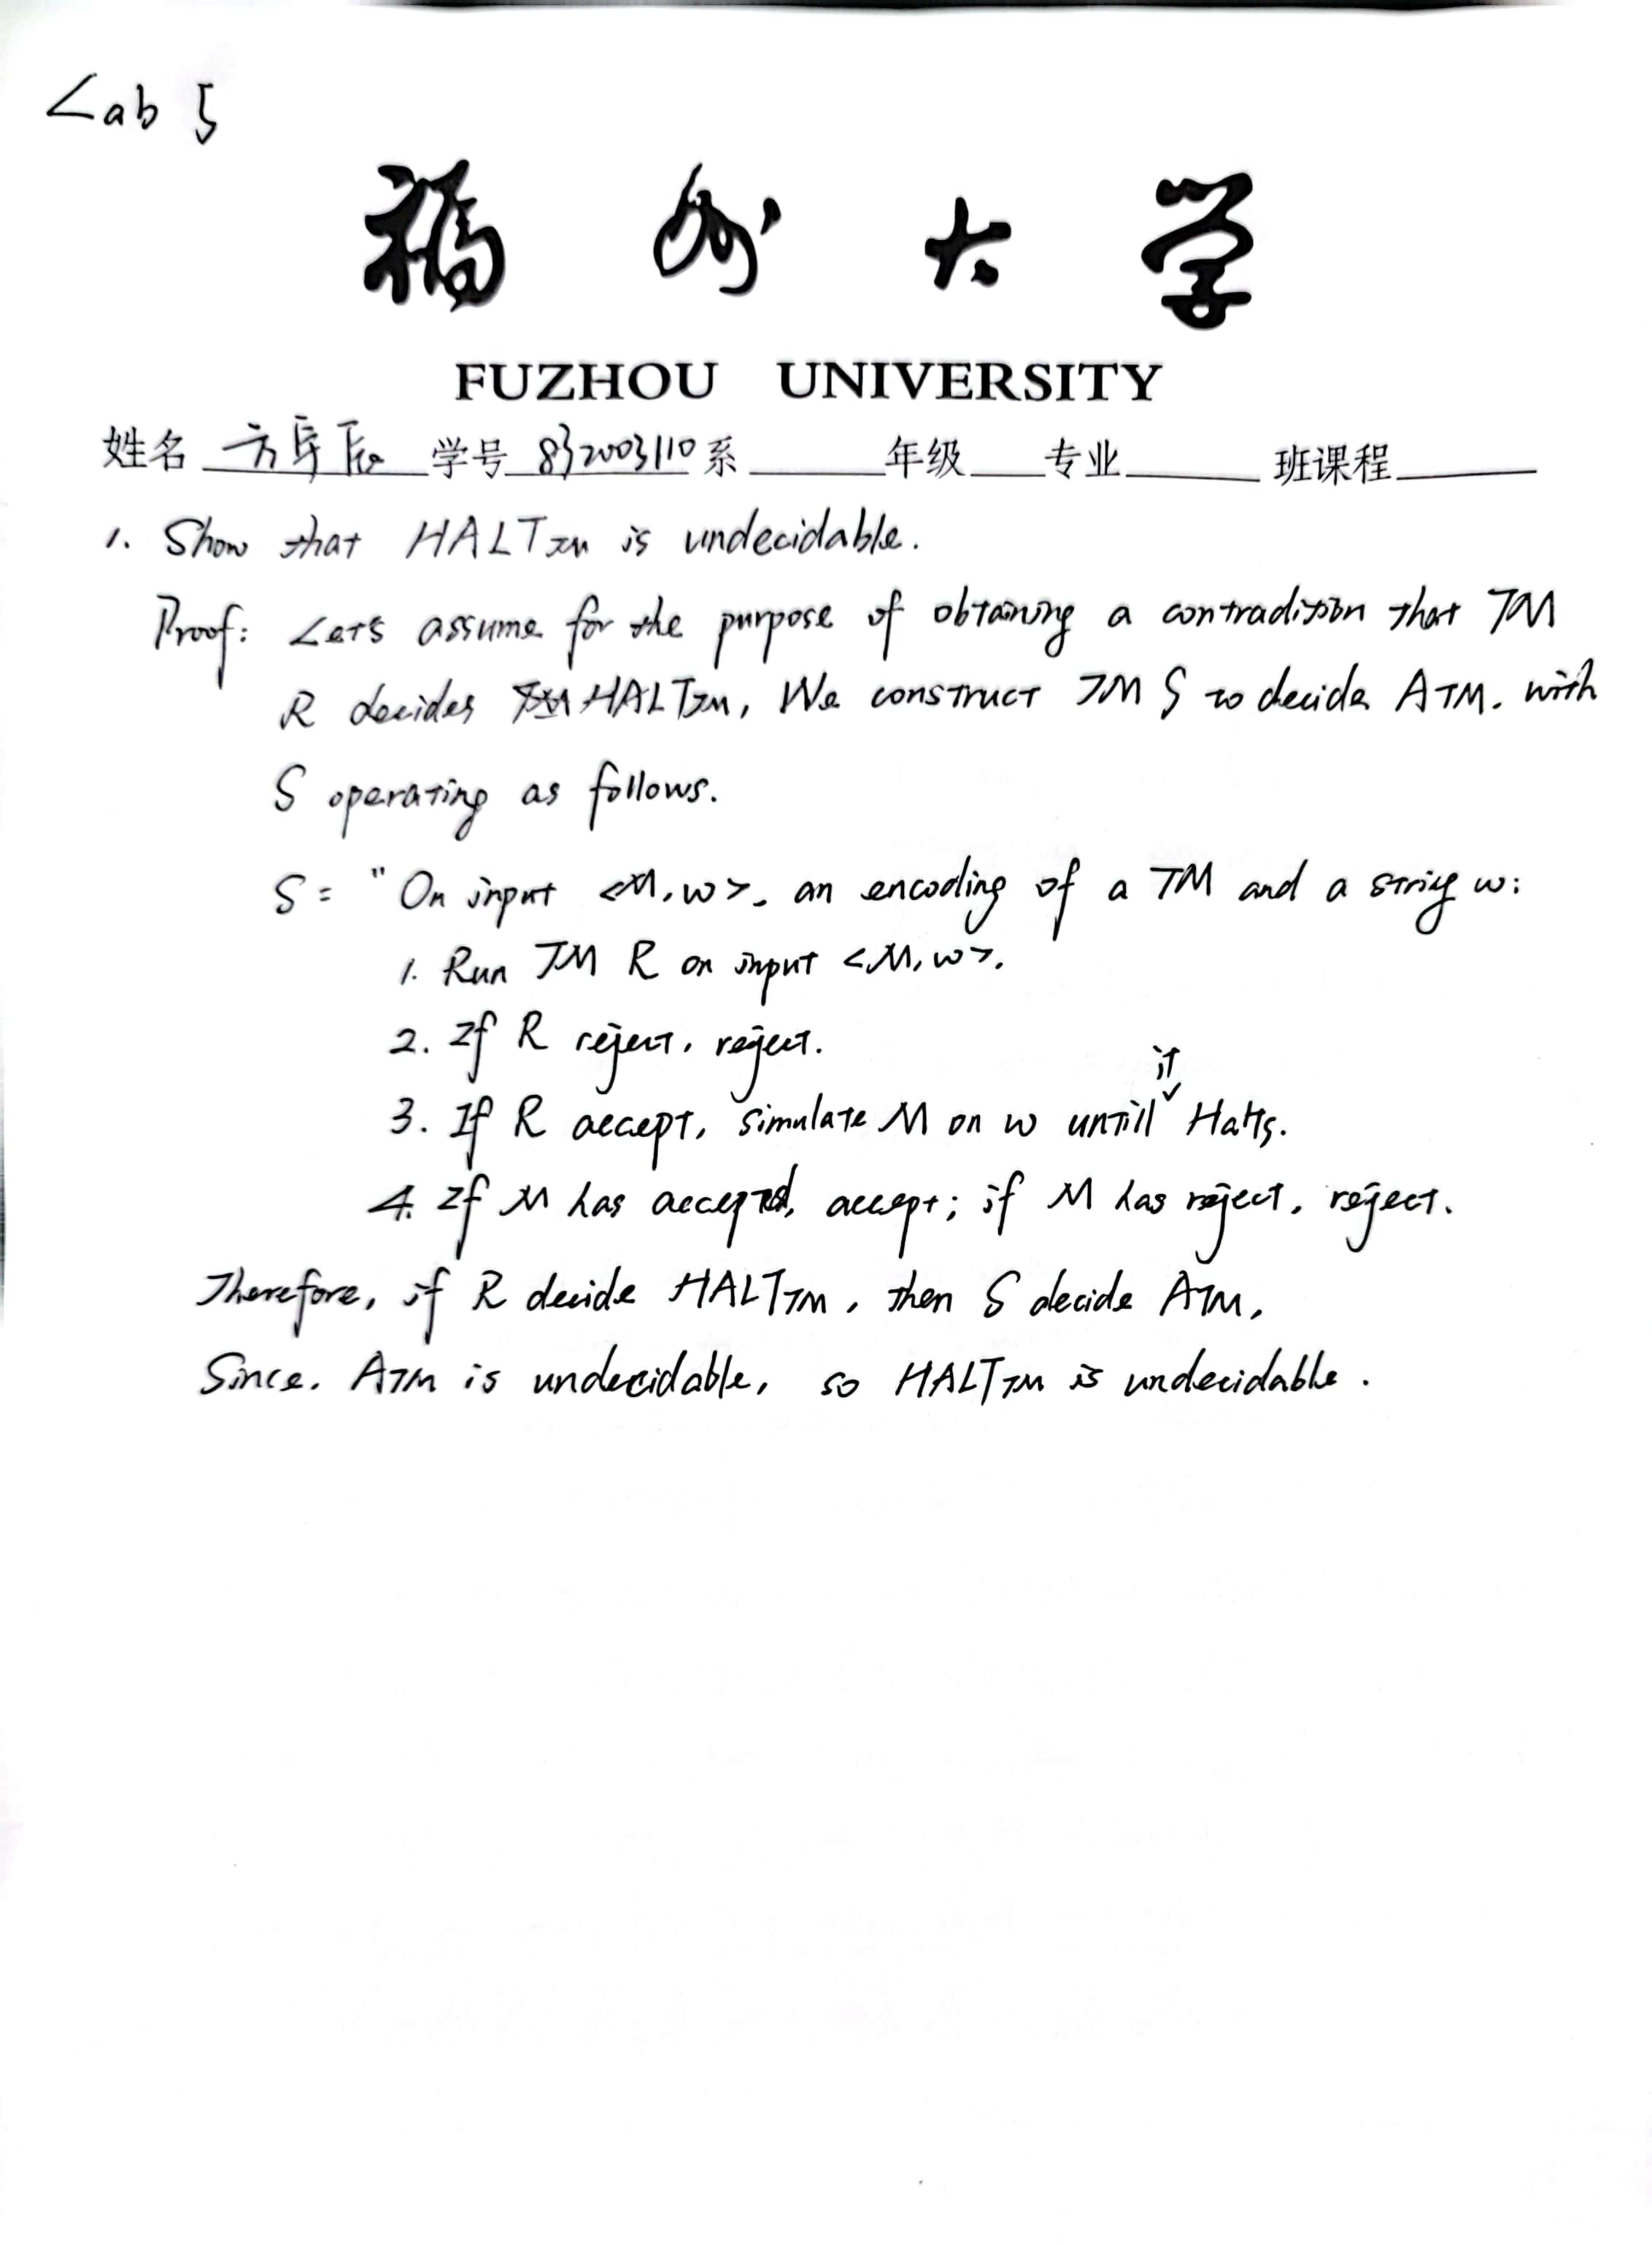 Lab 5
福州大学
FUZHOU UNIVERSITY
姓名 方 学号 832003110 系 年级 专业 班课程
1. Show that HALTTM is undecidable.
Proof: Let's assume for the purpose of obtaining a contradition that TM
R decides HALTTM, We construct TM S to decide ATM. with
S operating as follows.
S = "On input <M, w>, an encoding of a TM and a string w:
1. Run TM R on input <M, w>.
2. If R reject, reject.
3. If R accept, simulate M on w untill it Halts.
4. If M has accepted, accept; if M has reject, reject.
Therefore, if R decide HALTTM, then S decide ATM,
Since. ATM is undecidable, so HALTTM is undecidable.